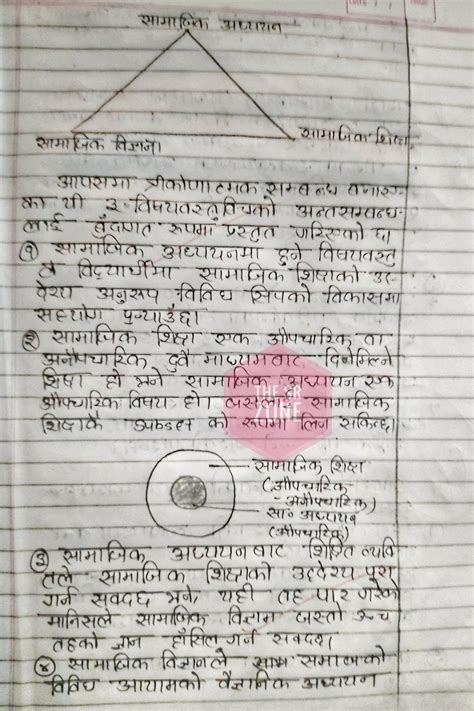 सामाजिक अध्ययन
सामाजिक विज्ञान
सामाजिक शिक्षा
आपसमा त्रीकोणात्मक सम्बन्ध
का यी ३ विषयवस्तुविचको अन्तसम्बन्ध-
लाई बुँदागत रूपमा प्रस्तुत गरिएको छ।
① सामाजिक अध्ययनमा हुने विषयवस्तु
ले विद्यार्थीमा सामाजिक शिक्षाको उद्
देश्य अनुरूप विविध सिपको विकासमा
सहयोग पुर्‍याउँछ।
② सामाजिक शिक्षा एक औपचारिक वा
अनौपचारिक दुवै माध्यमबाट दिनेमिल्ने
शिक्षा हो भने सामाजिक अध्ययन एक
औपचारिक विषय हो। यसलाई सामाजिक
शिक्षाकै Subset को रूपमा लिन सकिन्छ।
THE SR
ZONE
सामाजिक शिक्षा
(औपचारिक-
अनौपचारिक)
सा॰ अध्ययन
(औपचारिक)
③ सामाजिक अध्ययनबाट शिक्षित व्यक्ति
तले सामाजिक शिक्षाको उद्देश्य पुरा
गर्न सक्दछ भने, यही तह पार गरेको
मानिसले सामाजिक विज्ञान जस्तो उच्च
तहको ज्ञान हाँसिल गर्न सक्दछ।
④ सामाजिक विज्ञानले समाजको
विविध आयामको वैज्ञानिक अध्ययन